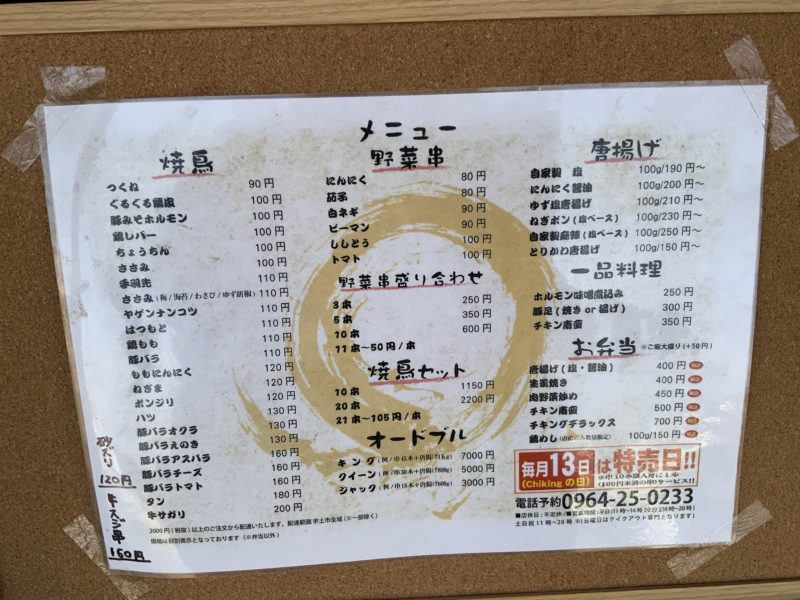 メニュー
焼鳥
つくね 90円
くるくる鶏皮 100円
豚みそホルモン 100円
鶏レバー 100円
ちょうちん 100円
ささみ 100円
手羽先 110円
ささみ(梅/海苔/わさび/ゆず胡椒) 110円
ヤゲンナンコツ 110円
はつもと 110円
鶏もも 110円
豚バラ 110円
ももにんにく 120円
ねぎま 120円
ボンジリ 120円
ハツ 130円
豚バラオクラ 130円
豚バラえのき 130円
豚バラアスパラ 160円
豚バラチーズ 160円
豚バラトマト 160円
タン 180円
牛サガリ 200円
砂ズリ
120円
牛スジ串
160円
2000円(税抜)以上のご注文から配達いたします。配達範囲 宇土市全域(※一部除く)
価格は税別表示となっております(※弁当以外)
野菜串
にんにく 80円
茄子 80円
白ネギ 90円
ピーマン 90円
ししとう 100円
トマト 100円
野菜串盛り合わせ
3本 250円
5本 350円
10本 600円
11本~50円/本
焼鳥セット
10本 1150円
20本 2200円
21本~105円/本
オードブル
キング(例/串45本+唐揚げ1Kg) 7000円
クイーン(例/串30本+唐揚げ800g) 5000円
ジャック(例/串15本+唐揚げ600g) 3000円
唐揚げ
自家製 塩 100g/190円~
にんにく醤油 100g/200円~
ゆず塩唐揚げ 100g/210円~
ねぎポン(塩ベース) 100g/230円~
自家製麻辣(塩ベース) 100g/250円~
とりかわ唐揚げ 100g/150円~
一品料理
ホルモン味噌煮込み 250円
豚足(焼き or 揚げ) 300円
チキン南蛮 350円
お弁当 ※ご飯大盛り(+50円)
唐揚げ(塩・醤油) 400円 税込
生姜焼き 400円 税込
肉野菜炒め 450円 税込
チキン南蛮 500円 税込
チキングデラックス 700円 税込
鶏めし 100g/150円 税込
毎月13日は特売日!!
(Chikingの日)
電話予約0964-25-0233
■店休日:不定休/■営業時間:平日(11時~14時30分)(16時~20時)
土日祝11時~20時 ※(日曜日はテイクアウト専門となります)